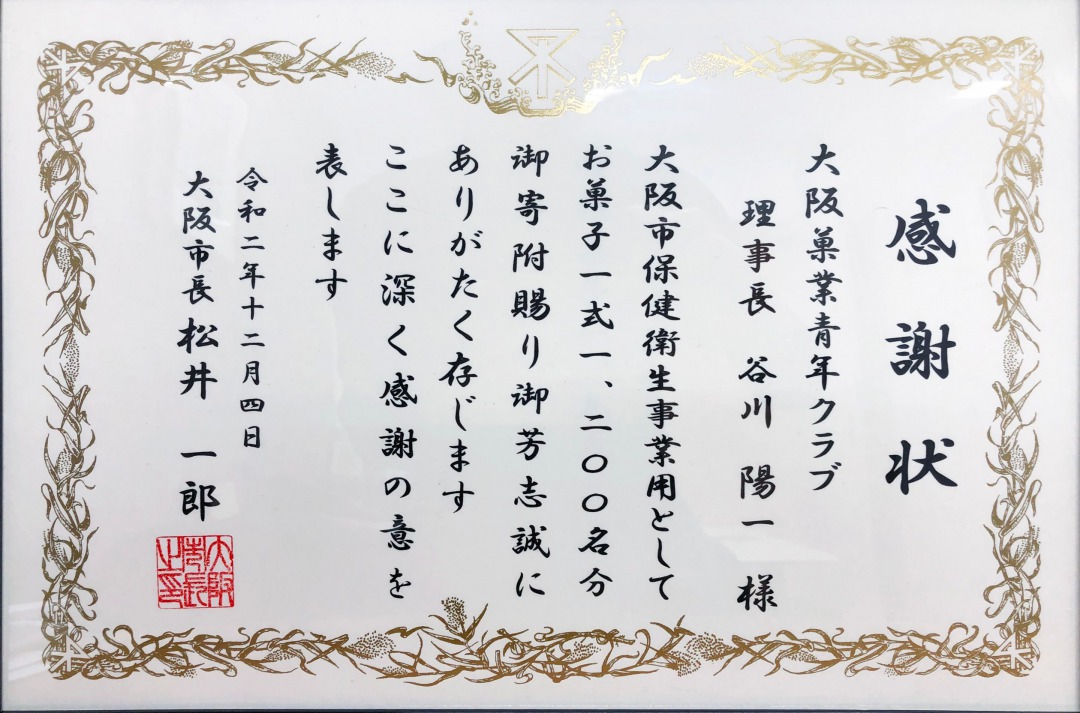 感謝状
大阪菓業青年クラブ
理事長 谷川 陽一 様
大阪市保健衛生事業用として
お菓子一式一、二〇〇名分
御寄附賜り御芳志誠に
ありがたく存じます
ここに深く感謝の意を
表します
令和二年十二月四日
大阪市長 松井 一郎
大阪市長之印